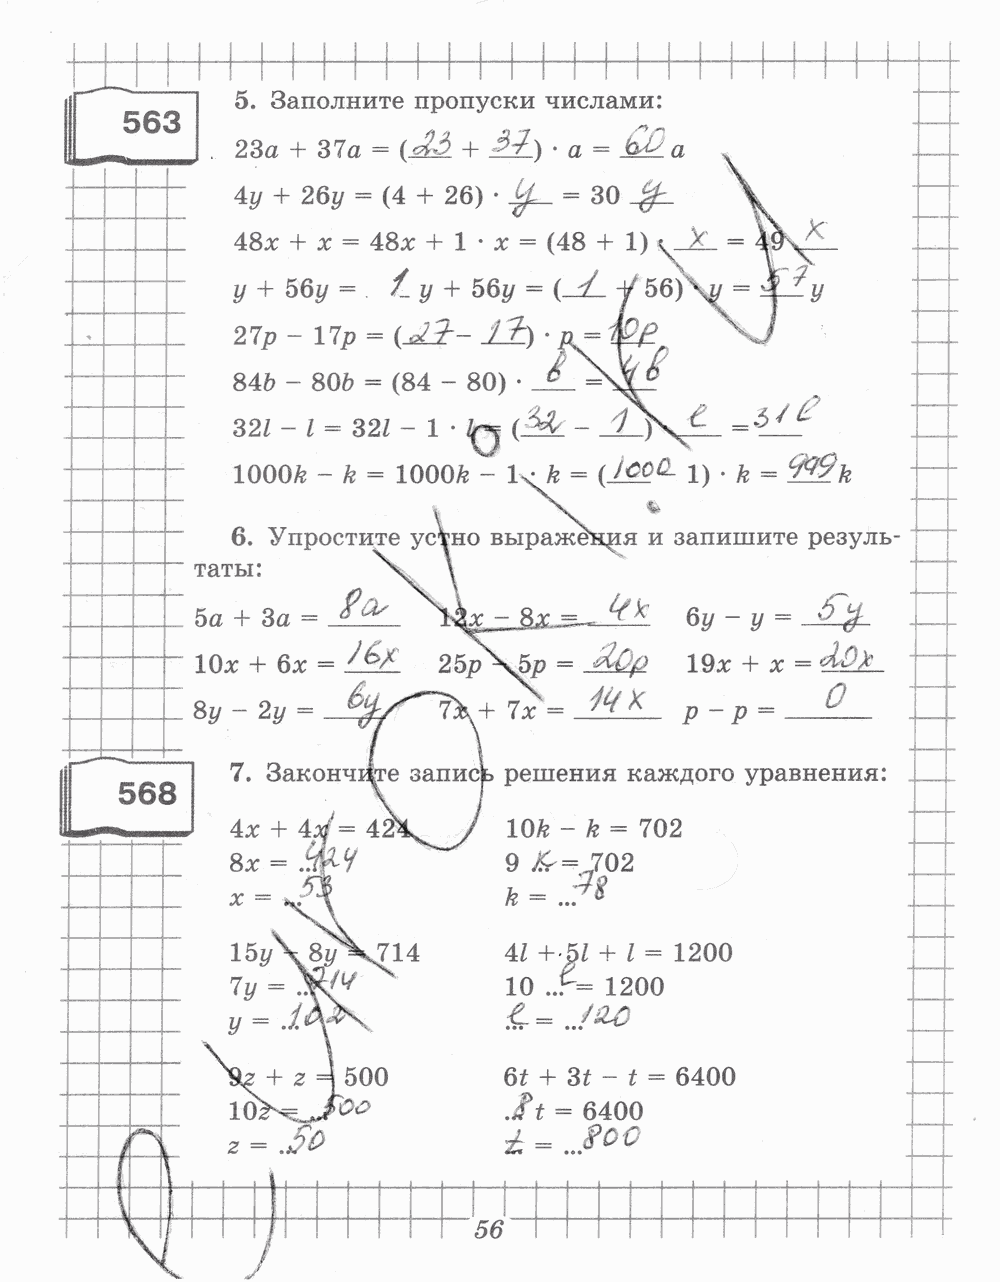 563
5. Заполните пропуски числами:
23a + 37a = (23 + 37) · a = 60 a
4y + 26y = (4 + 26) · y = 30 y
48x + x = 48x + 1 · x = (48 + 1) · x = 49 x
y + 56y = 1 y + 56y = (1 + 56) · y = 57 y
27p − 17p = (27 − 17) · p = 10p
84b − 80b = (84 − 80) · в = 4в
32l − l = 32l − 1 · l = (32 − 1) · l = 31l
1000k − k = 1000k − 1 · k = (1000 1) · k = 999 k
6. Упростите устно выражения и запишите резуль-
таты:
5a + 3a = 8a 12x − 8x = 4x 6y − y = 5y
10x + 6x = 16x 25p − 5p = 20p 19x + x = 20x
8y − 2y = 6y 7x + 7x = 14x p − p = 0
568
7. Закончите запись решения каждого уравнения:
4x + 4x = 424 10k − k = 702
8x = ...424 9 k = 702
x = ...53 k = ...78
15y − 8y = 714 4l + 5l + l = 1200
7y = ...714 10 ...l = 1200
y = ...102 l = ...120
9z + z = 500 6t + 3t − t = 6400
10z = ...500 ...8 t = 6400
z = ...50 t = ...800
56